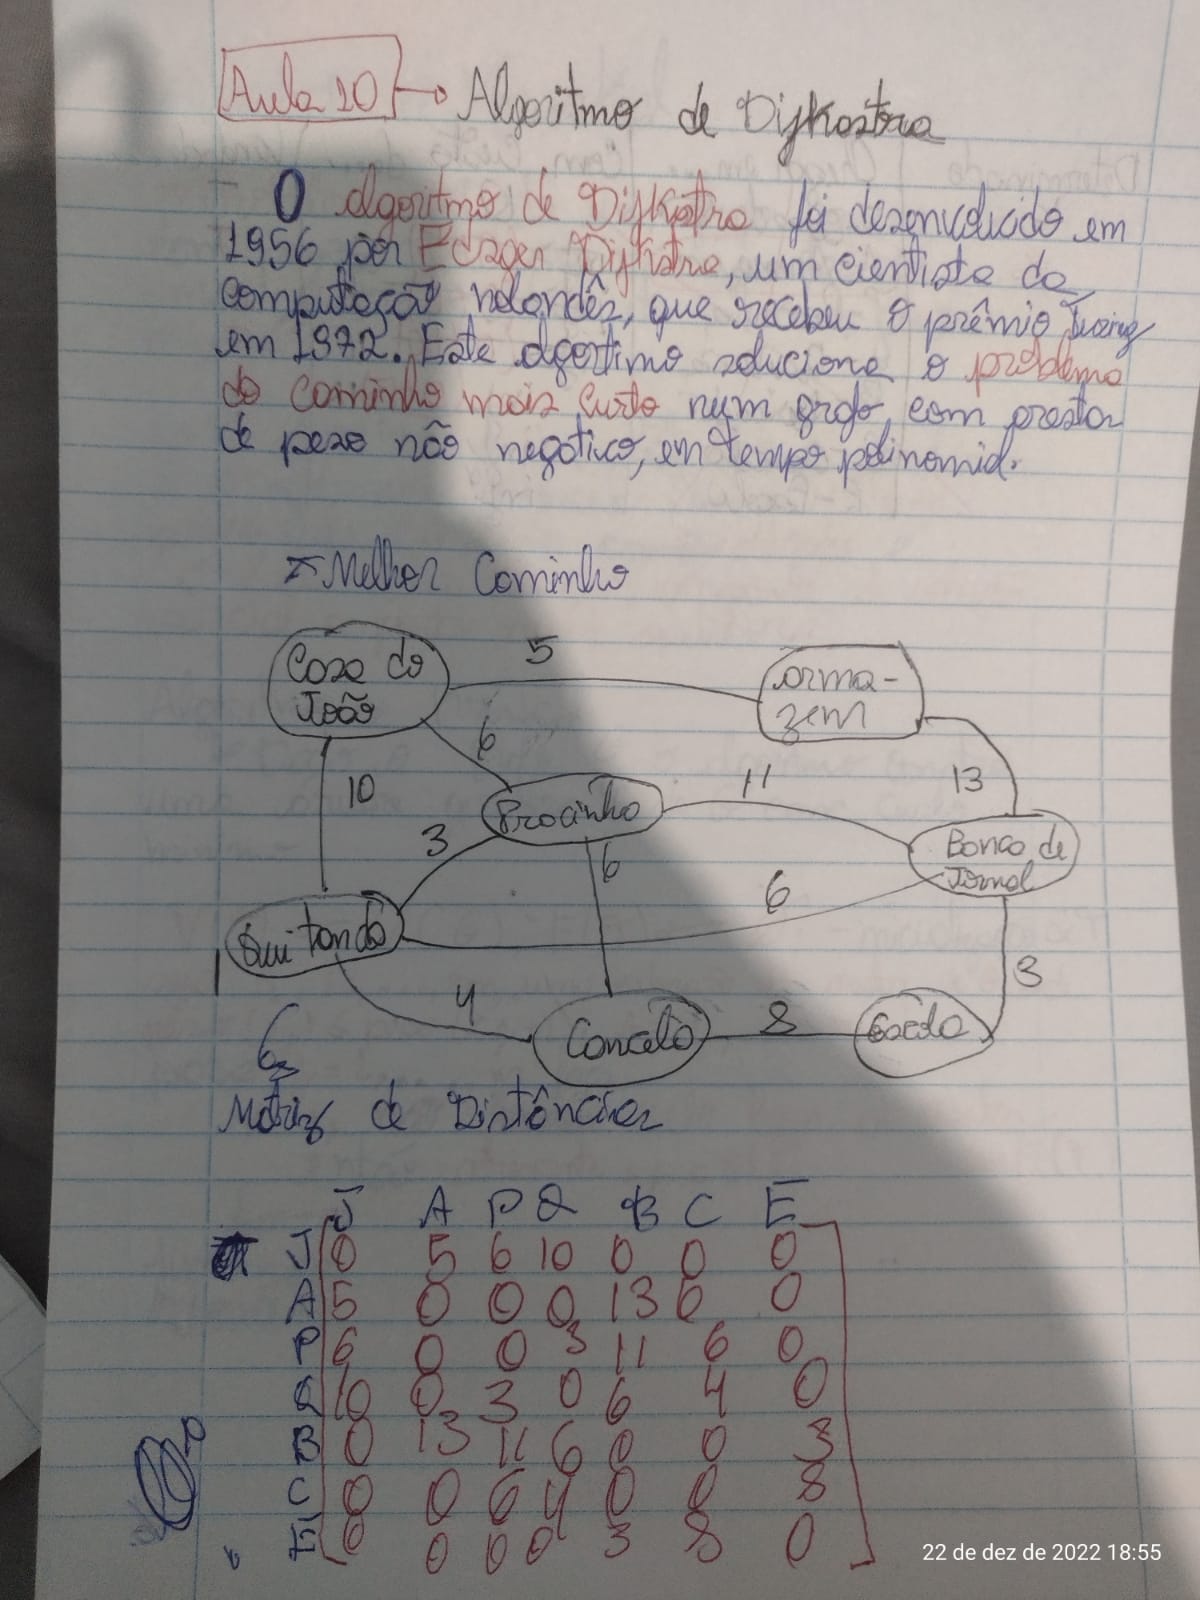 Aula 10 → Algoritmo de Dijkastra
O algoritmo de Dijkstra foi desenvolvido em
1956 por Edsger Dijkstra, um cientista da
computação holandês, que recebeu o prêmio Turing
em 1972. Este algortimo soluciona o problema
do caminho mais curto num grafo, com arestas
de peso não negativo, em tempo polinomial.
Melhor Caminho
Casa do
João
5
arma-
zem
6
10
11
13
Pracinha
3
6
Banca de
Jornal
6
Quitanda
3
4
Concelo
8
Escola
Matriz de Distâncias
J A P Q B C E
J 0 5 6 10 0 0 0
A 5 0 0 0 13 0 0
P 6 0 0 3 11 6 0
Q 10 0 3 0 6 4 0
B 0 13 11 6 0 0 3
C 0 0 6 4 0 0 8
E 0 0 0 0 3 8 0
22 de dez de 2022 18:55